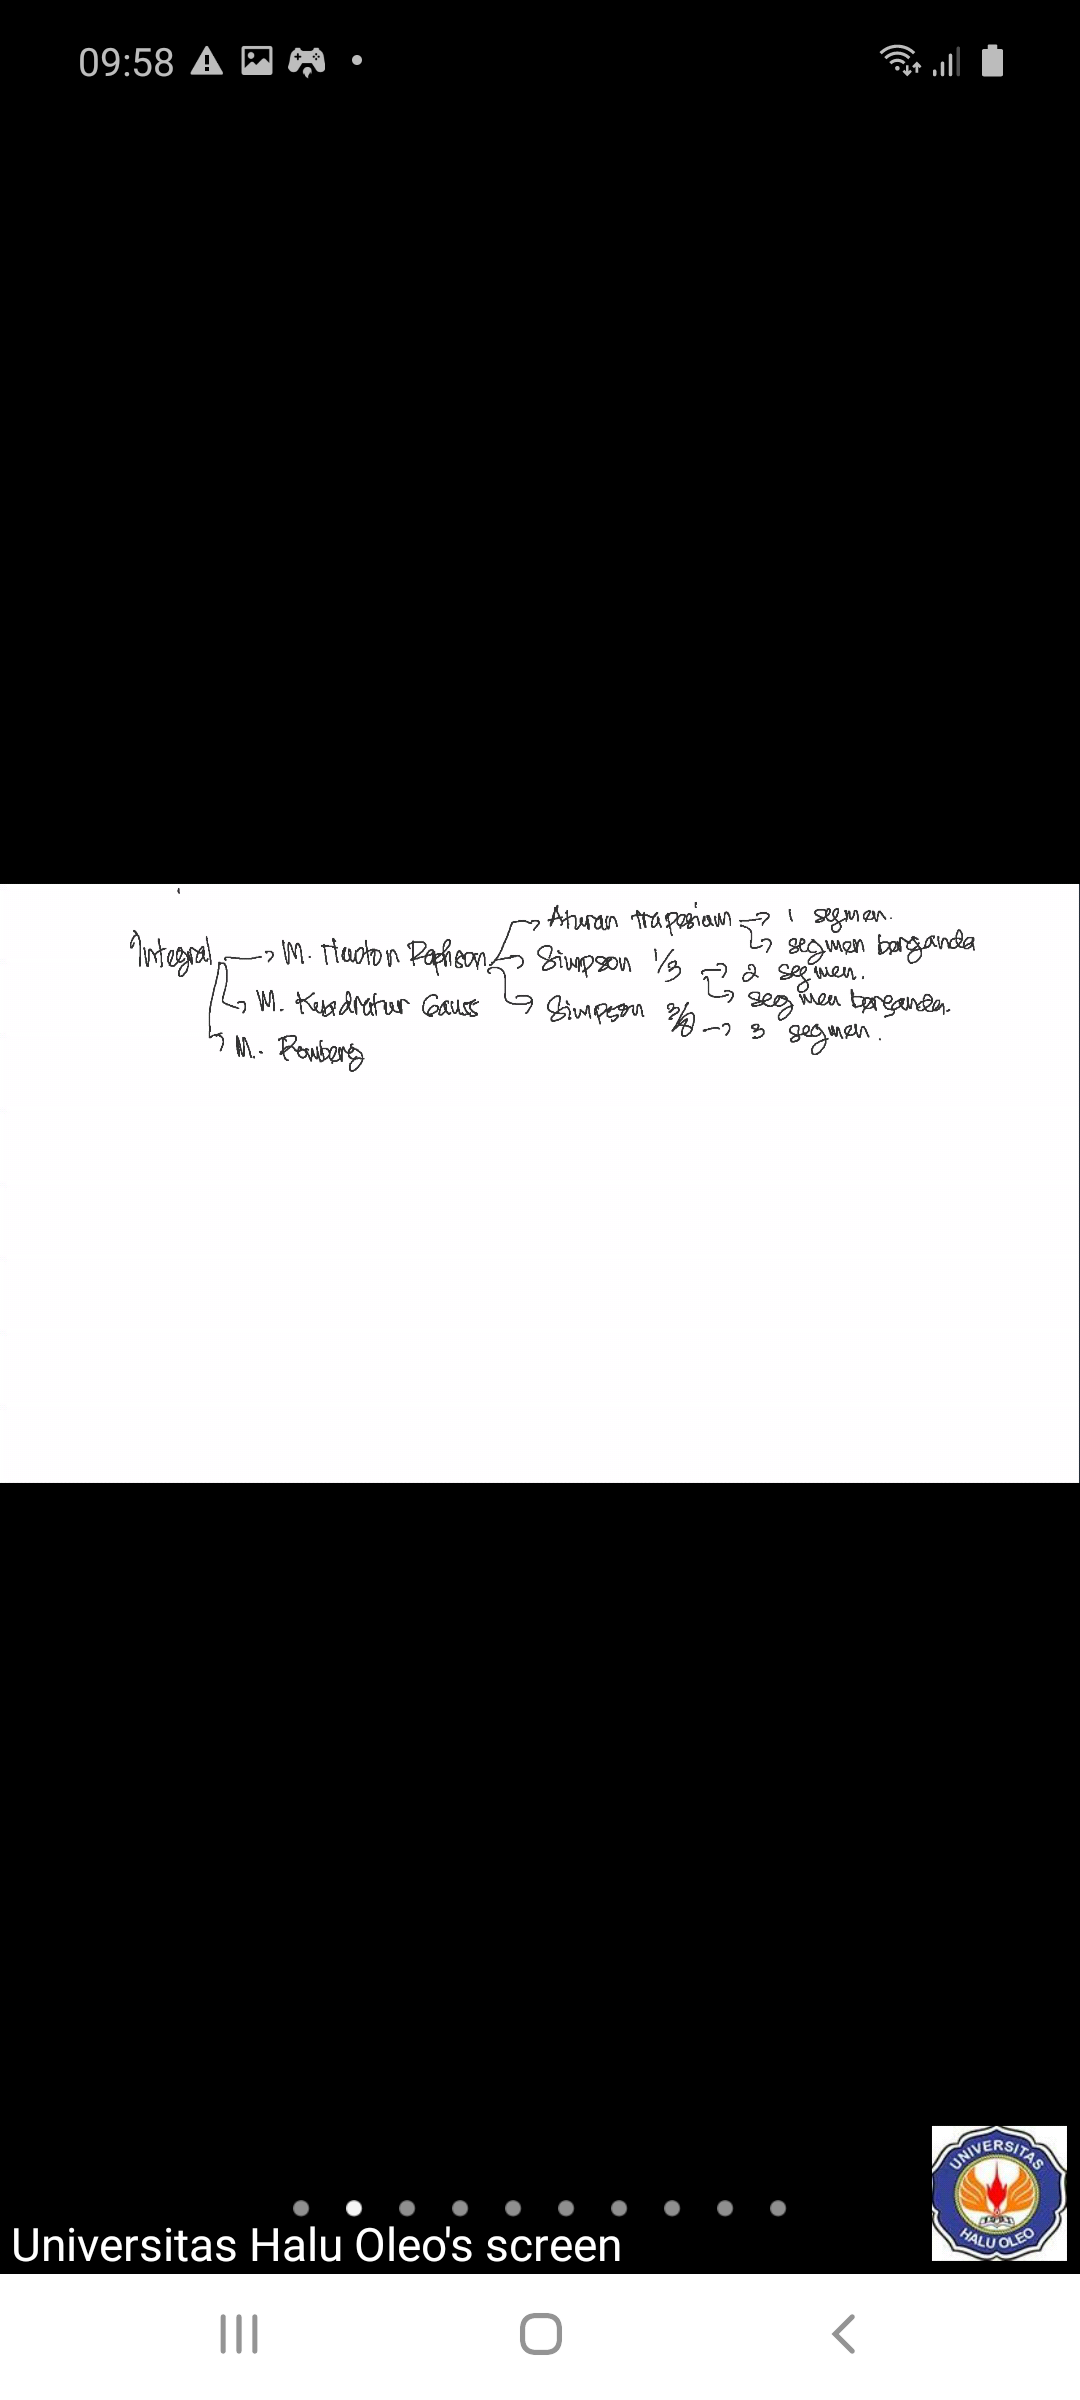 09:58
Integral → M. Newton Raphson → Aturan trapesium → 1 segmen.
→ segmen berganda
→ Simpson 1/3 → 2 segmen.
→ segmen berganda.
→ Simpson 3/8 → 3 segmen.
→ M. Kuadratur Gauss
→ M. Romberg
Universitas Halu Oleo's screen
UNIVERSITAS
HALU OLEO